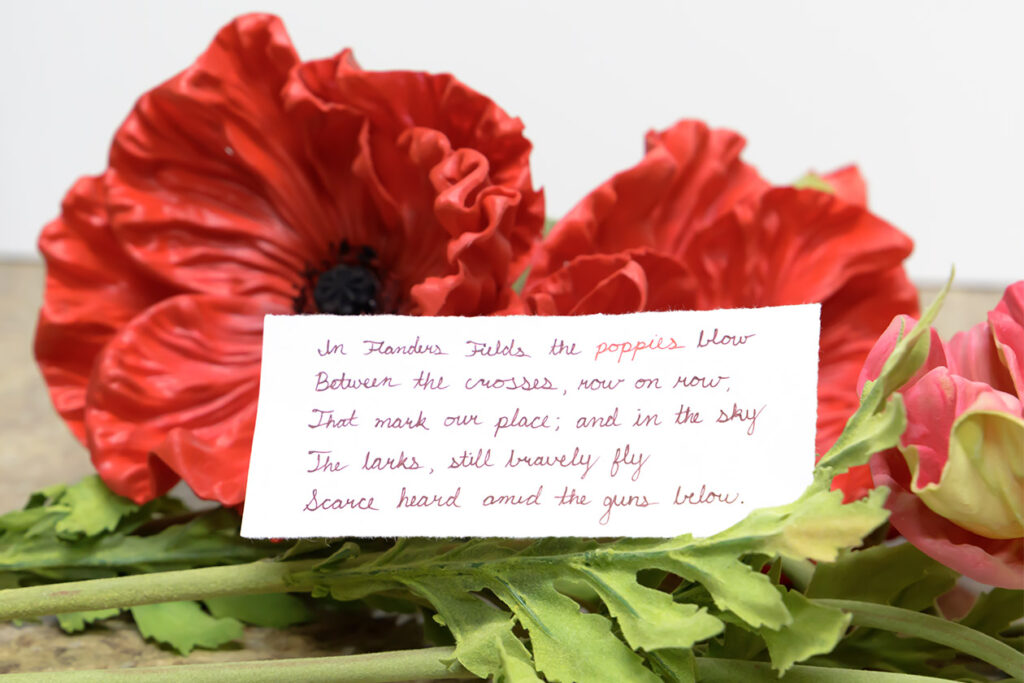 In Flanders Fields the poppies blow
Between the crosses, row on row,
That mark our place; and in the sky
The larks, still bravely fly
Scarce heard amid the guns below.